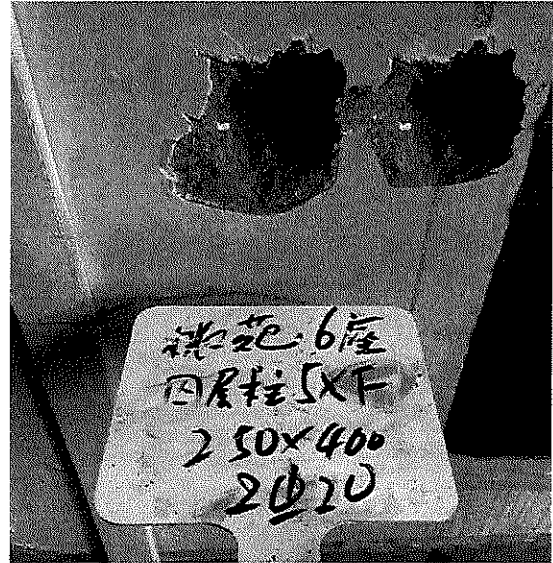 苑6座
四层柱5XF
250X400
2Φ20